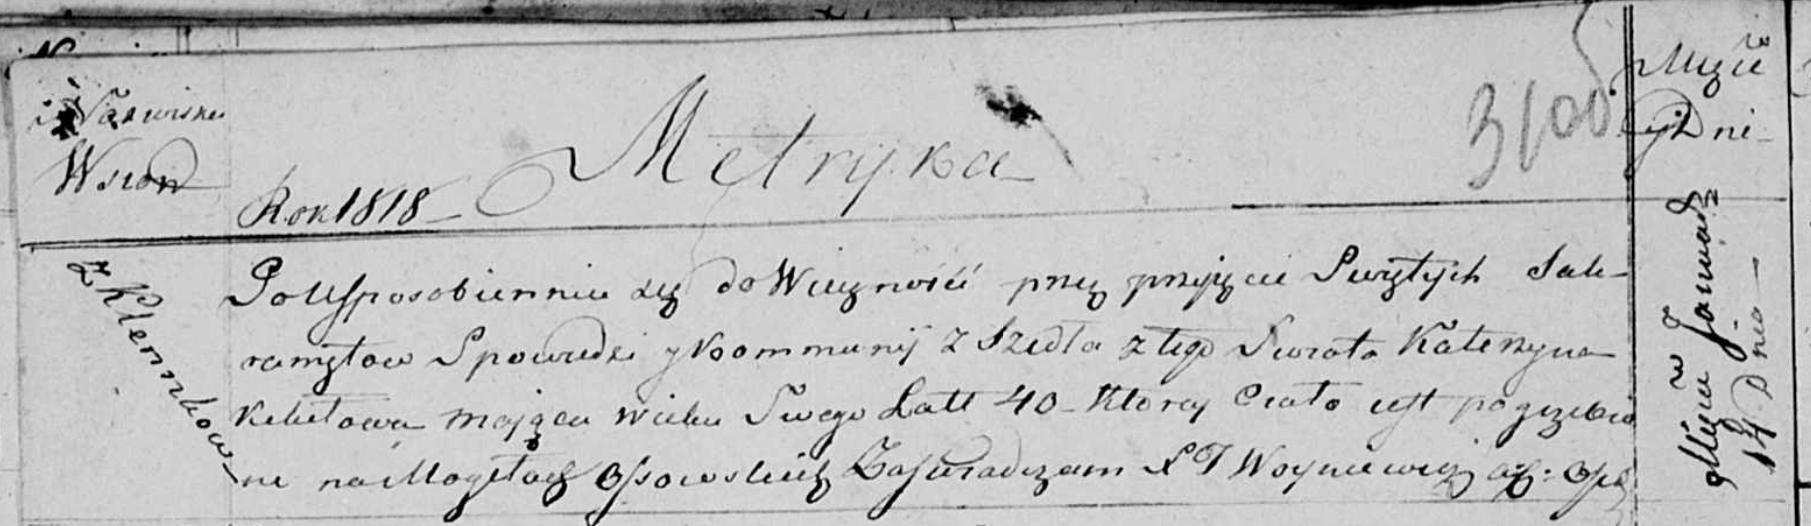 i Nazwisko
Wsiow
Rok 1818
Metryka
Miesie
y D ni
z Klennikow
Po Usposobienniu się do Wiecznosci przez przyięcie Swiętych Sak-
ramętow Spowiedzi y Kommunij Zeszedła z tego Swiata Katerzyna
mająca wieku Swego Latt 40 Ktorey Ciało iest pogrzebio
ne na Mogiłach Ossowskich Zaswiadczam X J Woyniewicz
Miesie January
14 Dnia